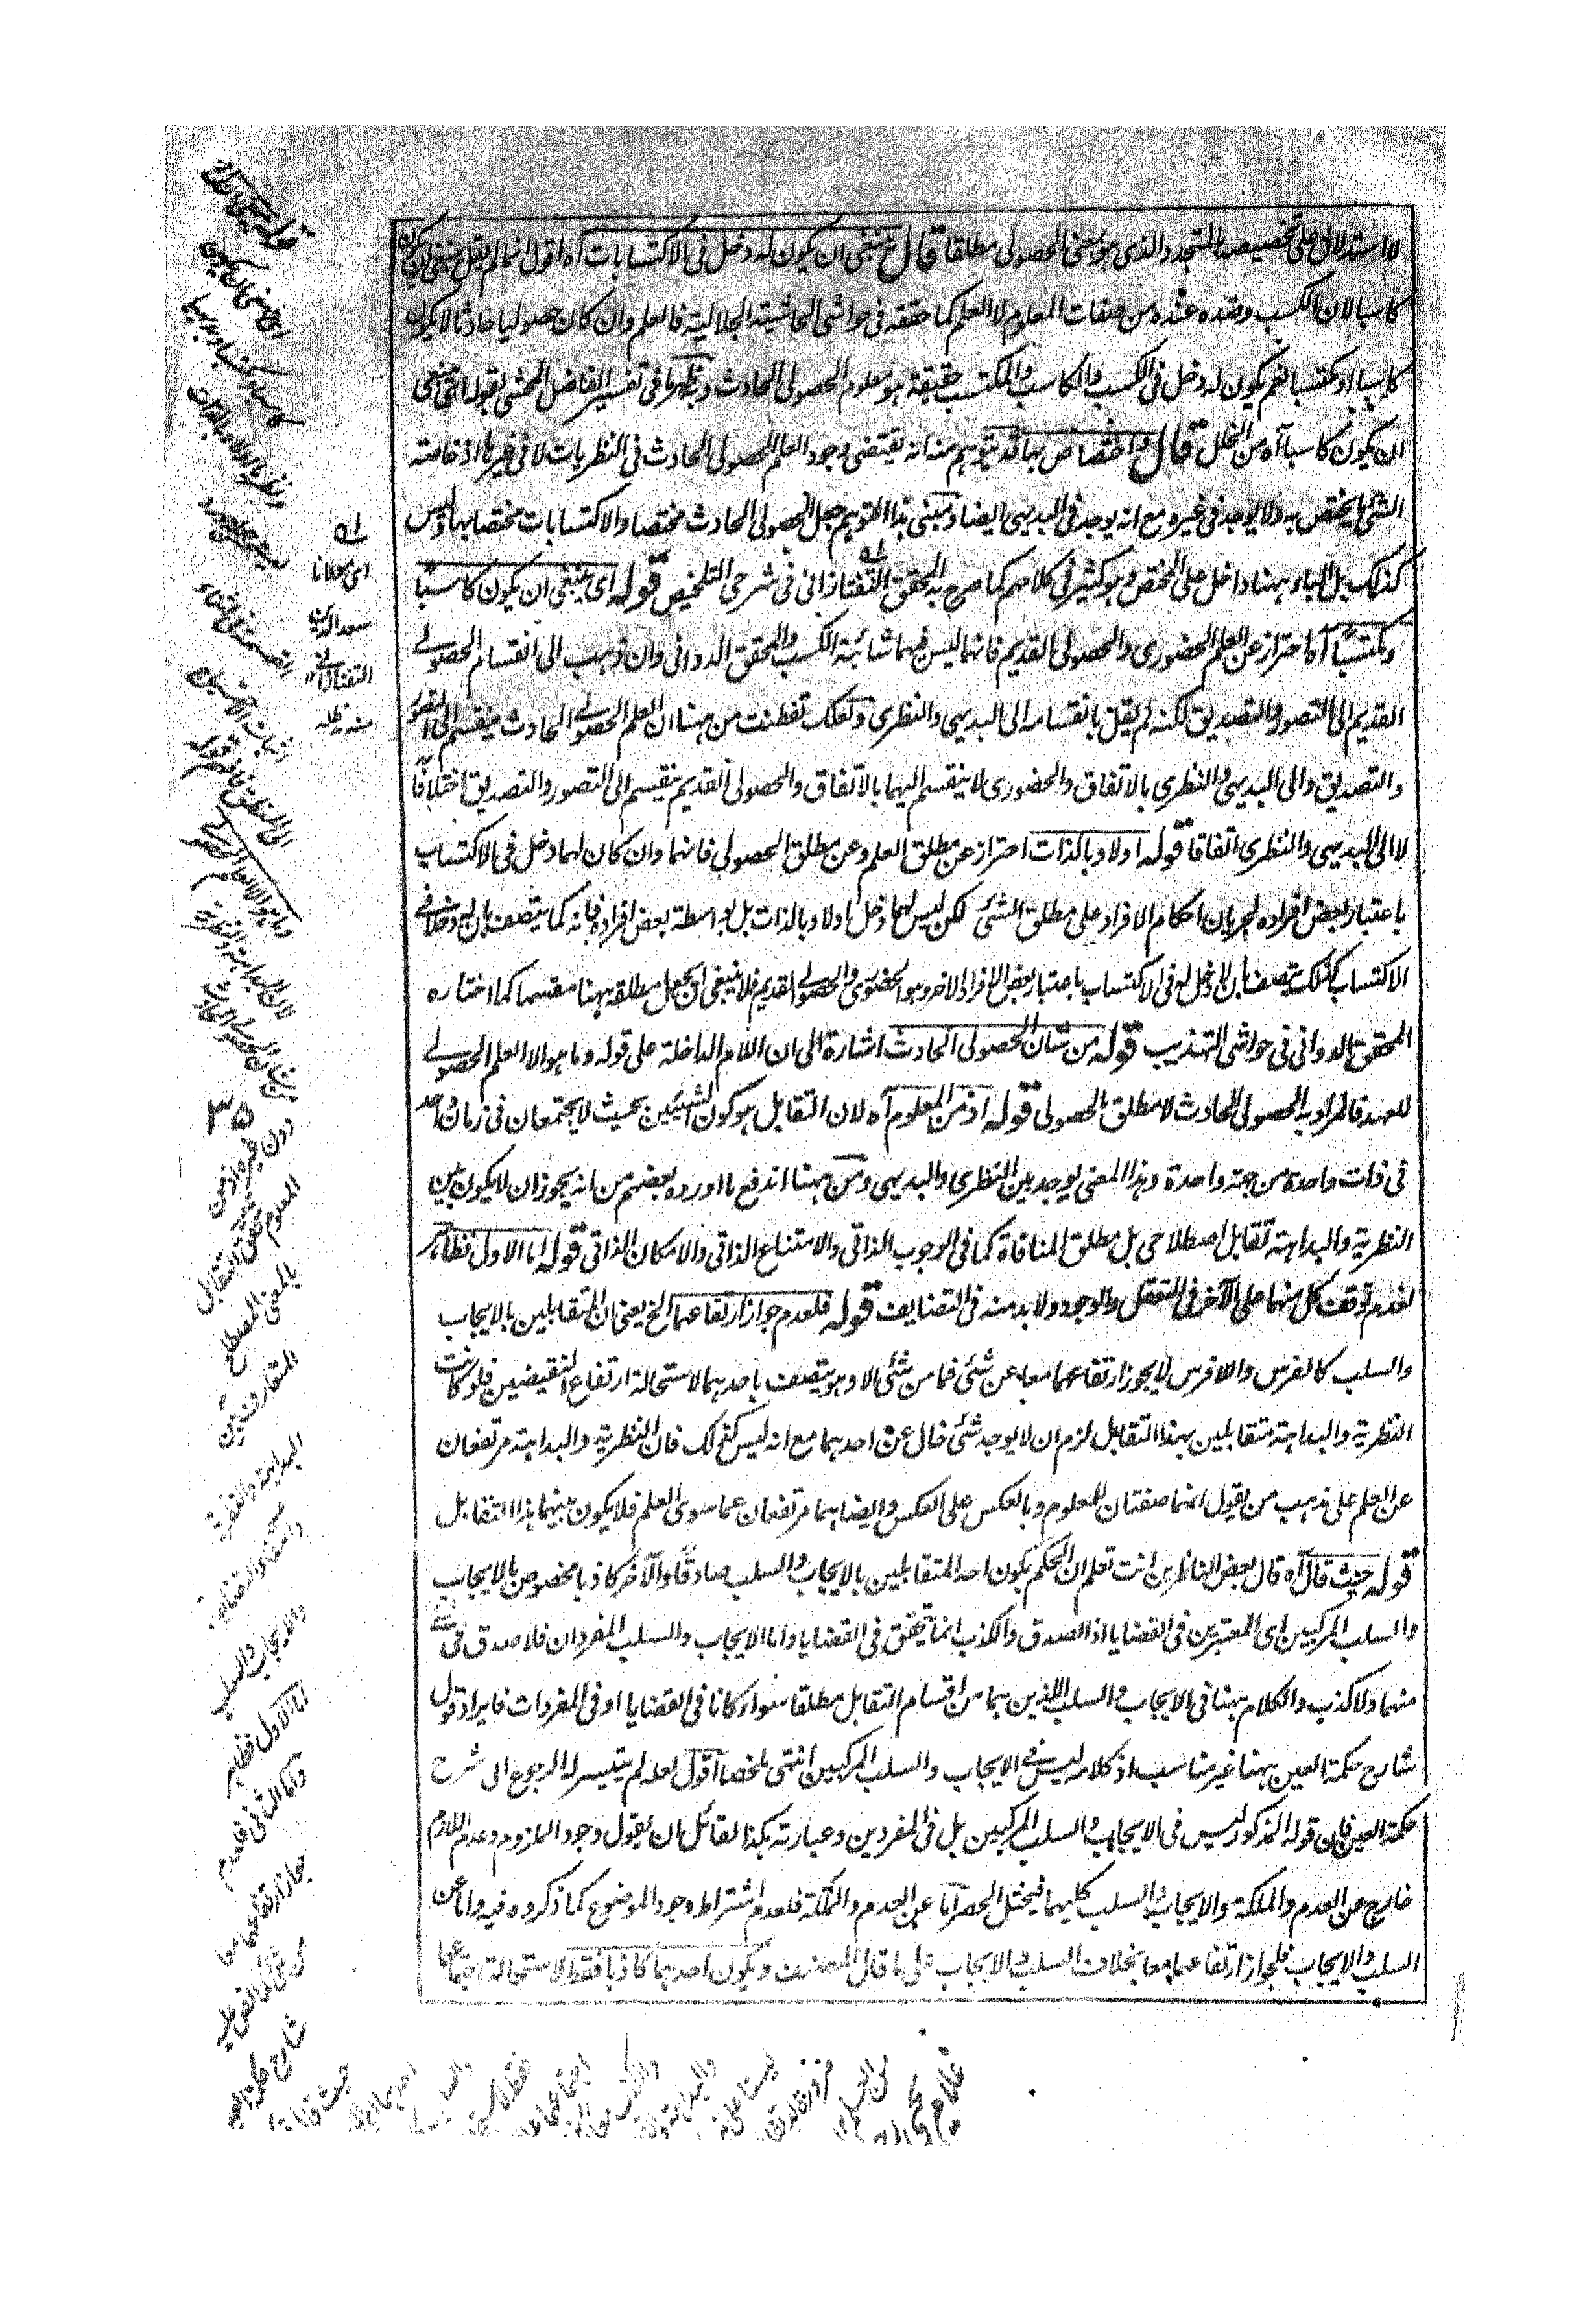 لا استدلال على تخصيصه بالمتجدد والذي هو بمعنى الحصولى مطلقا قال ينبغى ان يكون له دخل فى الاكتسابات آه اقول انما لم يقل ينبغى ان يكون
كاسبا لان الكسب وضده عنده من صفات المعلوم لا العلم كما حققه فى حواشى الحاشية الجلالية فالعلم وان كان حصوليا حادثا لا يكون
كاسبا او مكتسبا نعم يكون له دخل فى الكسب والكاسب والمكتسب حقيقة هو معلوم الحصولى الحادث وظهر ما فى تفسير الفاضل المحشى بقوله اى ينبغى
ان يكون كاسبا آه من الخلل قال واختصاص بها قد يتوهم منه انه يقتضى وجود العلم الحصولى الحادث فى النظريات لا فى غيرها اذ خاصة
الشئ ما يختص به ولا يوجد فى غيره مع انه يوجد فى البديهى ايضا ومبنى هذا التوهم جعل الحصولى الحادث مختصا والاكتسابات مختصا بها وليس
كذلك بل الباء ههنا داخل على المختص وهو كثير فى كلامهم كما صرح به المحقق التفتازانى فى شرحى التلخيص قوله اى ينبغى ان يكون كاسبا
ومكتسبا آه احتراز عن العلم الحضورى والحصولى القديم فانهما ليس فيهما شائبة الكسب والمحقق الدوانى وان ذهب الى انقسام الحصولى
القديم الى التصور والتصديق لكنه لم يقل بانقسامه الى البديهى والنظرى ولعلك تفطنت من ههنا ان العلم الحصولى الحادث ينقسم الى التصور
والتصديق والى البديهى والنظرى بالاتفاق والحضورى لا ينقسم اليهما بالاتفاق والحصولى القديم ينقسم الى التصور والتصديق اختلافا
لا الى البديهى والنظرى اتفاقا قوله اولا وبالذات احتراز عن مطلق العلم وعن مطلق الحصولى فانهما وان كان لهما دخل فى الاكتساب
باعتبار بعض افراده لجريان احكام الافراد على مطلق الشئ لكن ليس لهما دخل اولا وبالذات بل بواسطة بعض افراده فانه كما يتصف بان له دخلا فى
الاكتساب كذلك يتصف بان لا دخل له فى الاكتساب باعتبار بعض الافراد الاخر وهو الحضورى والحصولى القديم فلا ينبغى ان يجعل مطلقه ههنا مقسما كما اختاره
المحقق الدوانى فى حواشى التهذيب قوله من شان الحصولى الحادث اشارة الى ان اللام الداخلة على قوله وما هو الا العلم الحصولى
للعهد فالمراد به الحصولى الحادث لا مطلق الحصولى قوله اذ من المعلوم آه لان التقابل هو كون الشيئين بحيث لا يجتمعان فى زمان واحد
فى ذات واحدة من جهة واحدة وهذا المعنى يوجد بين النظرى والبديهى ومن ههنا اندفع ما اورده بعضهم من انه يجوز ان لا يكون بين
النظرية والبداهة تقابل اصطلاحى بل مطلق المنافاة كما فى الوجوب الذاتى والامتناع الذاتى والامكان الذاتى قوله اما الاول فظاهر
لعدم توقف كل منهما على الآخر فى التعقل والوجود ولا بد منه فى التضايف قوله فلعدم جواز ارتفاعهما الخ يعنى ان المتقابلين بالايجاب
والسلب كالفرس واللافرس لا يجوز ارتفاعهما معا عن شئ فما من شئ الا وهو يتصف باحدهما لاستحالة ارتفاع النقيضين فلو كانت
النظرية والبداهة متقابلين بهذا التقابل لزم ان لا يوجد شئ خال عن احدهما مع انه ليس كذلك فان النظرية والبداهة مرتفعان
عن العلم على مذهب من يقول انهما صفتان للمعلوم وبالعكس على العكس وايضا هما مرتفعان عما سوى العلم فلا يكون بينهما هذا التقابل
قوله حيث قال آه قال بعض الناظرين انت تعلم ان الحكم بكون احد المتقابلين بالايجاب والسلب صادقا والآخر كاذبا مخصوص بالايجاب
والسلب المركبين اى المعتبرين فى القضايا اذ الصدق والكذب انما يتحقق فى القضايا واما الايجاب والسلب المفردان فلا صدق فى
منهما ولا كذب والكلام ههنا فى الايجاب والسلب اللذين هما من اقسام التقابل مطلقا سواء كانا فى القضايا او فى المفردات فايراد قول
شارح حكمة العين ههنا غير مناسب اذ كلامه ليس فى الايجاب والسلب المركبين انتهى ملخصا اقول لعله لم يتيسر له الرجوع الى شرح
حكمة العين فان قوله المذكور ليس فى الايجاب والسلب المركبين بل فى المفردين وعبارته هكذا لقائل ان يقول وجود الملزوم وعدم اللازم
خارج عن العدم والملكة والايجاب والسلب كليهما فيختل الحصر اما عن العدم والملكة فلعدم اشتراط وجود الموضوع كما ذكروه فيه واما عن
السلب والايجاب فلجواز ارتفاعهما معا بخلاف السلب والايجاب على ما قال المصنف ويكون احدهما كاذبا فقط لاستحالة اجتماعهما
اى مولانا
سعد الدين
التفتازانى
منه ظله
٣٥
دون غيره اذ من
المعلوم تحقق التقابل
بالمعنى المصطلح
البداهة والنظرية
والايجاب والسلب
اما الاول فظاهر
واما الثانى فلعدم
جواز ارتفاعهما معا
عن شئ
شارح حكمة العين
حيث قال